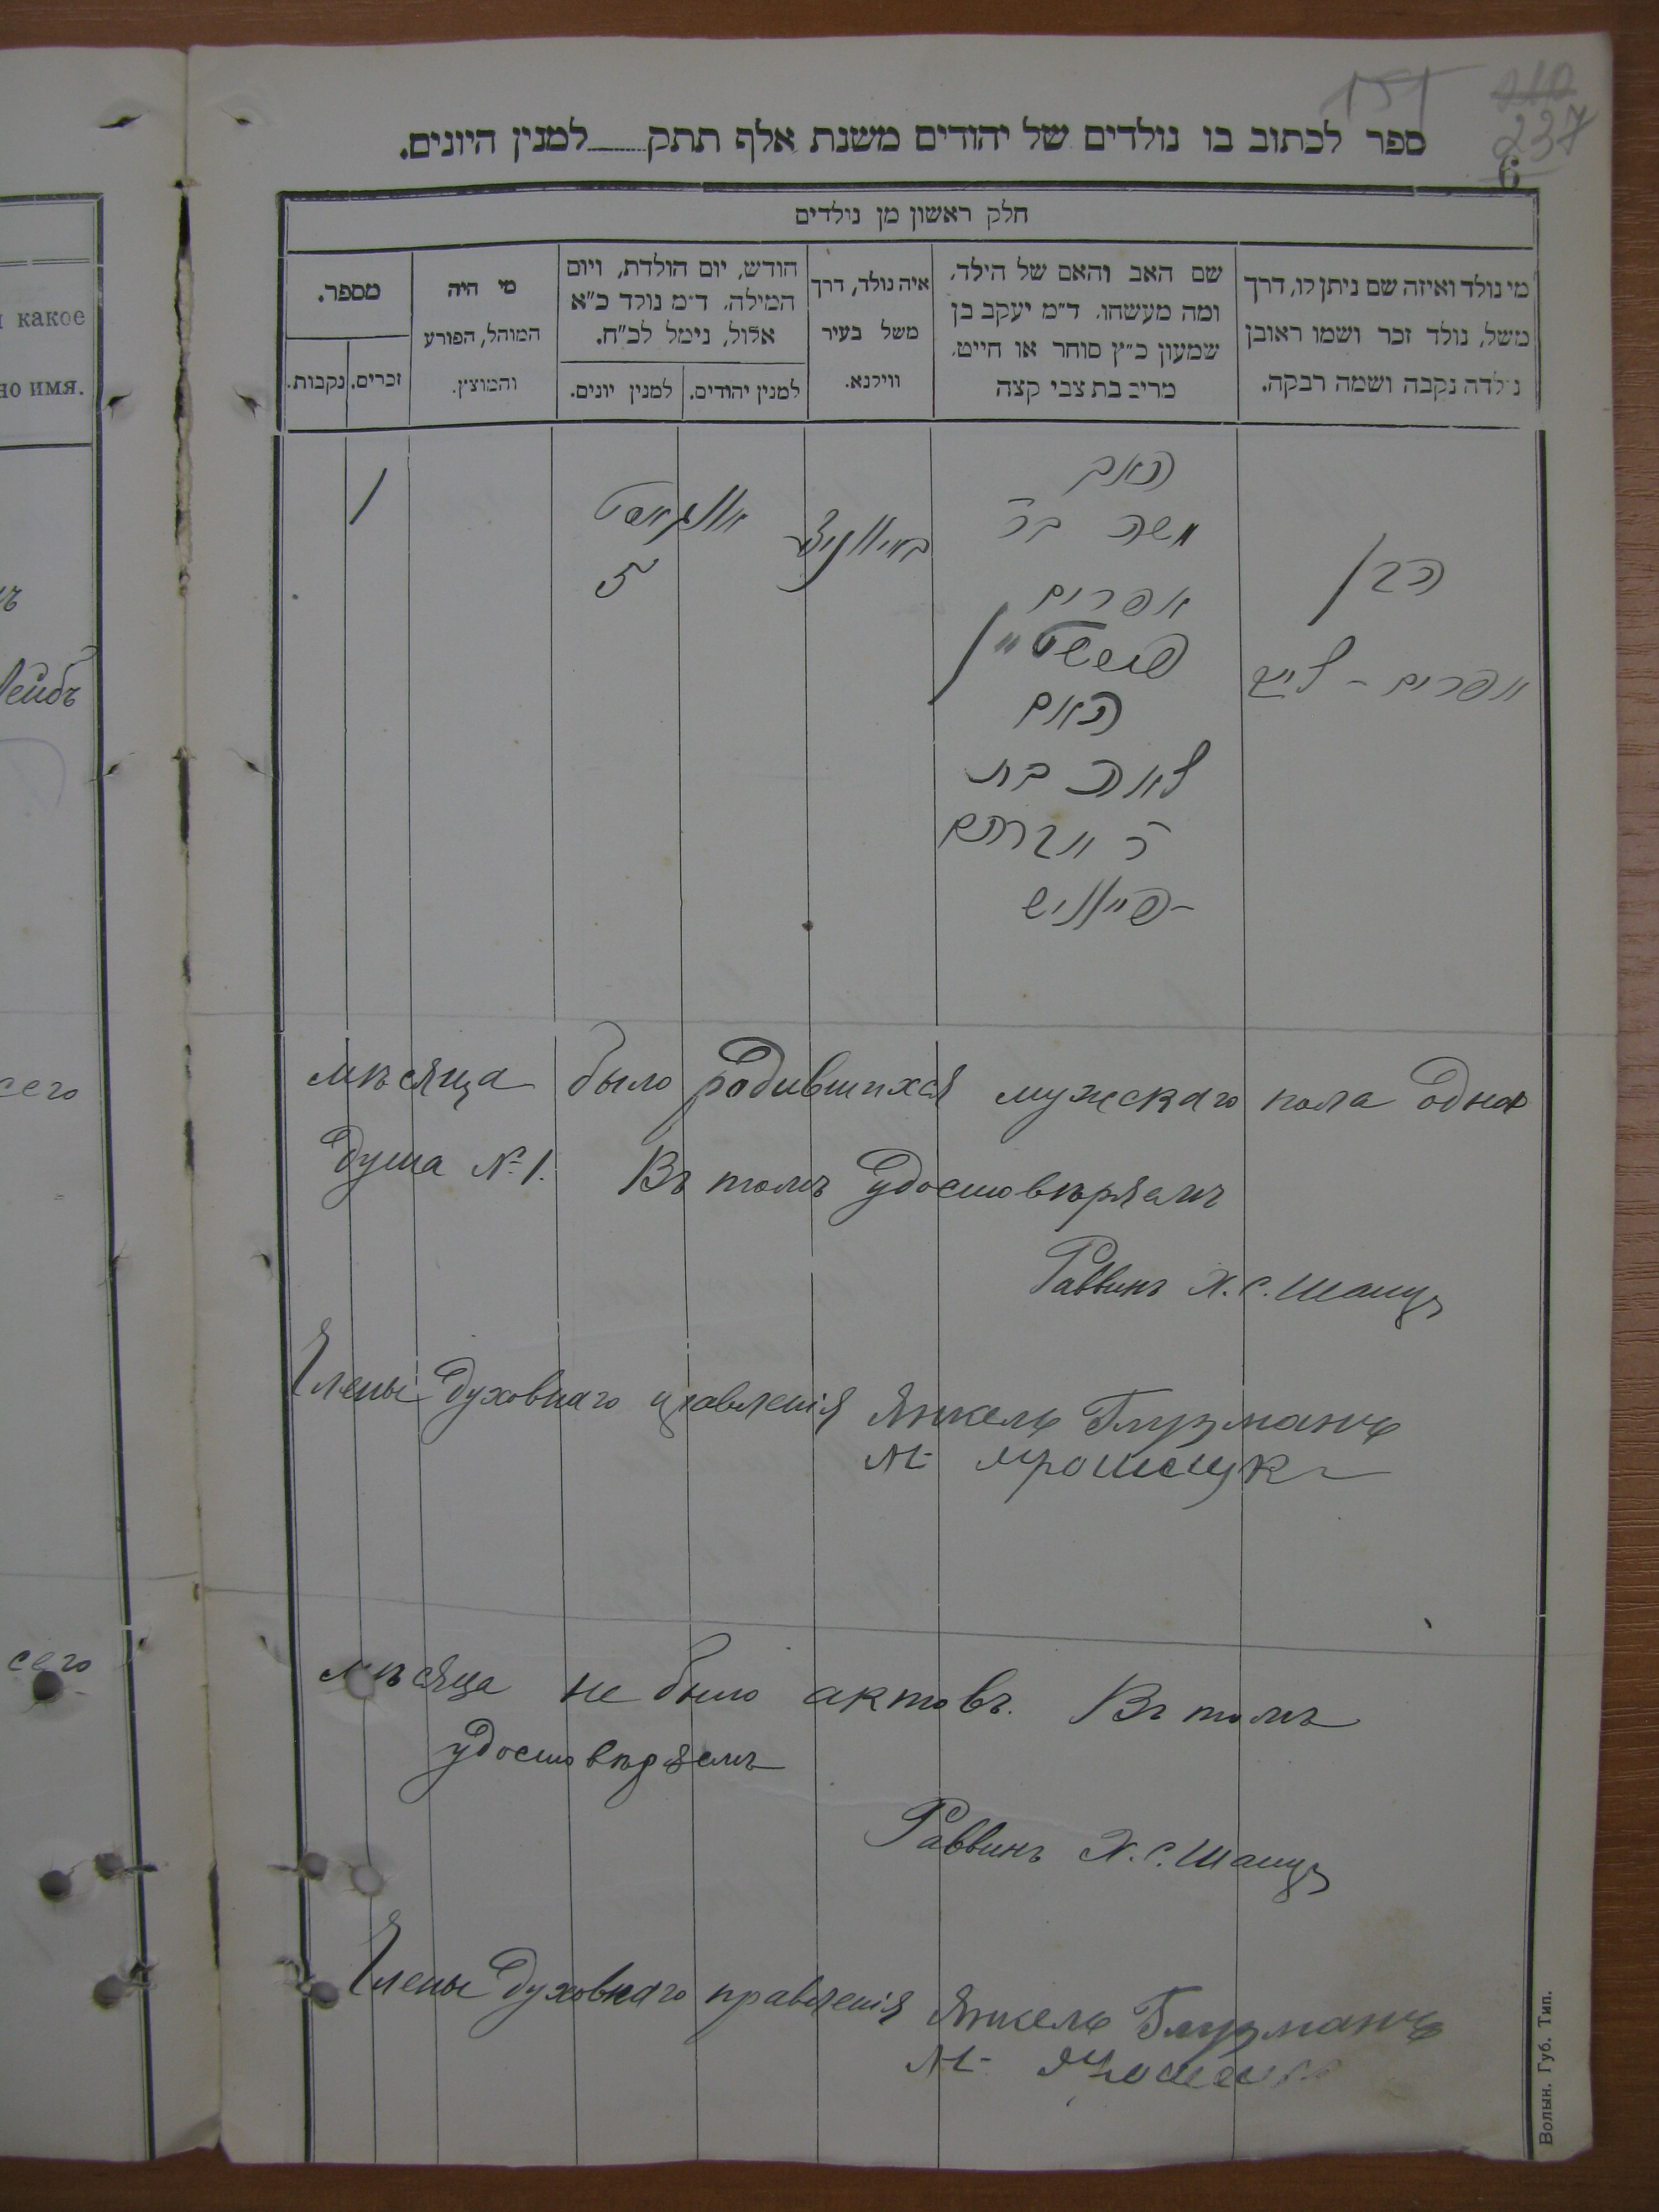 151
210
237
6
ספר לכתוב בו נולדים של יהודים משנת אלף תתק למנין היונים.
חלק ראשון מן נולדים
מי נולד ואיזה שם ניתן לו, דרך
משל, נולד זכר ושמו ראובן
נולדה נקבה ושמה רבקה.
שם האב והאם של הילד,
ומה מעשהו. ד״מ יעקב בן
שמעון כ״ץ סוחר או חייט.
מרים בת צבי קצה
איה נולד, דרך
משל בעיר
ווילנא.
חודש, יום הולדת, ויום
המילה. ד״מ נולד כ״א
אלול, נימל לכ״ח.
למנין יהודים.
למנין יונים.
מי היה
המוהל, הפורע
והמוצץ.
מספר.
זכרים.
נקבות.
הבן
אפרים - לייב
האב
משה בר
אפרים
האם
לאה בת
ר אברהם
אווגוסט
5
1
мѣсяца было родившихся мужскаго пола одна
душа № 1. Въ томъ удостовѣряемъ
Раввинъ Х. С. Шапиръ
Члены духовнаго правленія Янкель Глузманъ
М
мѣсяца не было актовъ. Въ томъ
удостовѣряемъ
Раввинъ Х. С. Шапиръ
Члены духовнаго правленія Янкель Глузманъ
М
и какое
но имя.
Лейбъ
сего
сего
Волын. Губ. Тип.